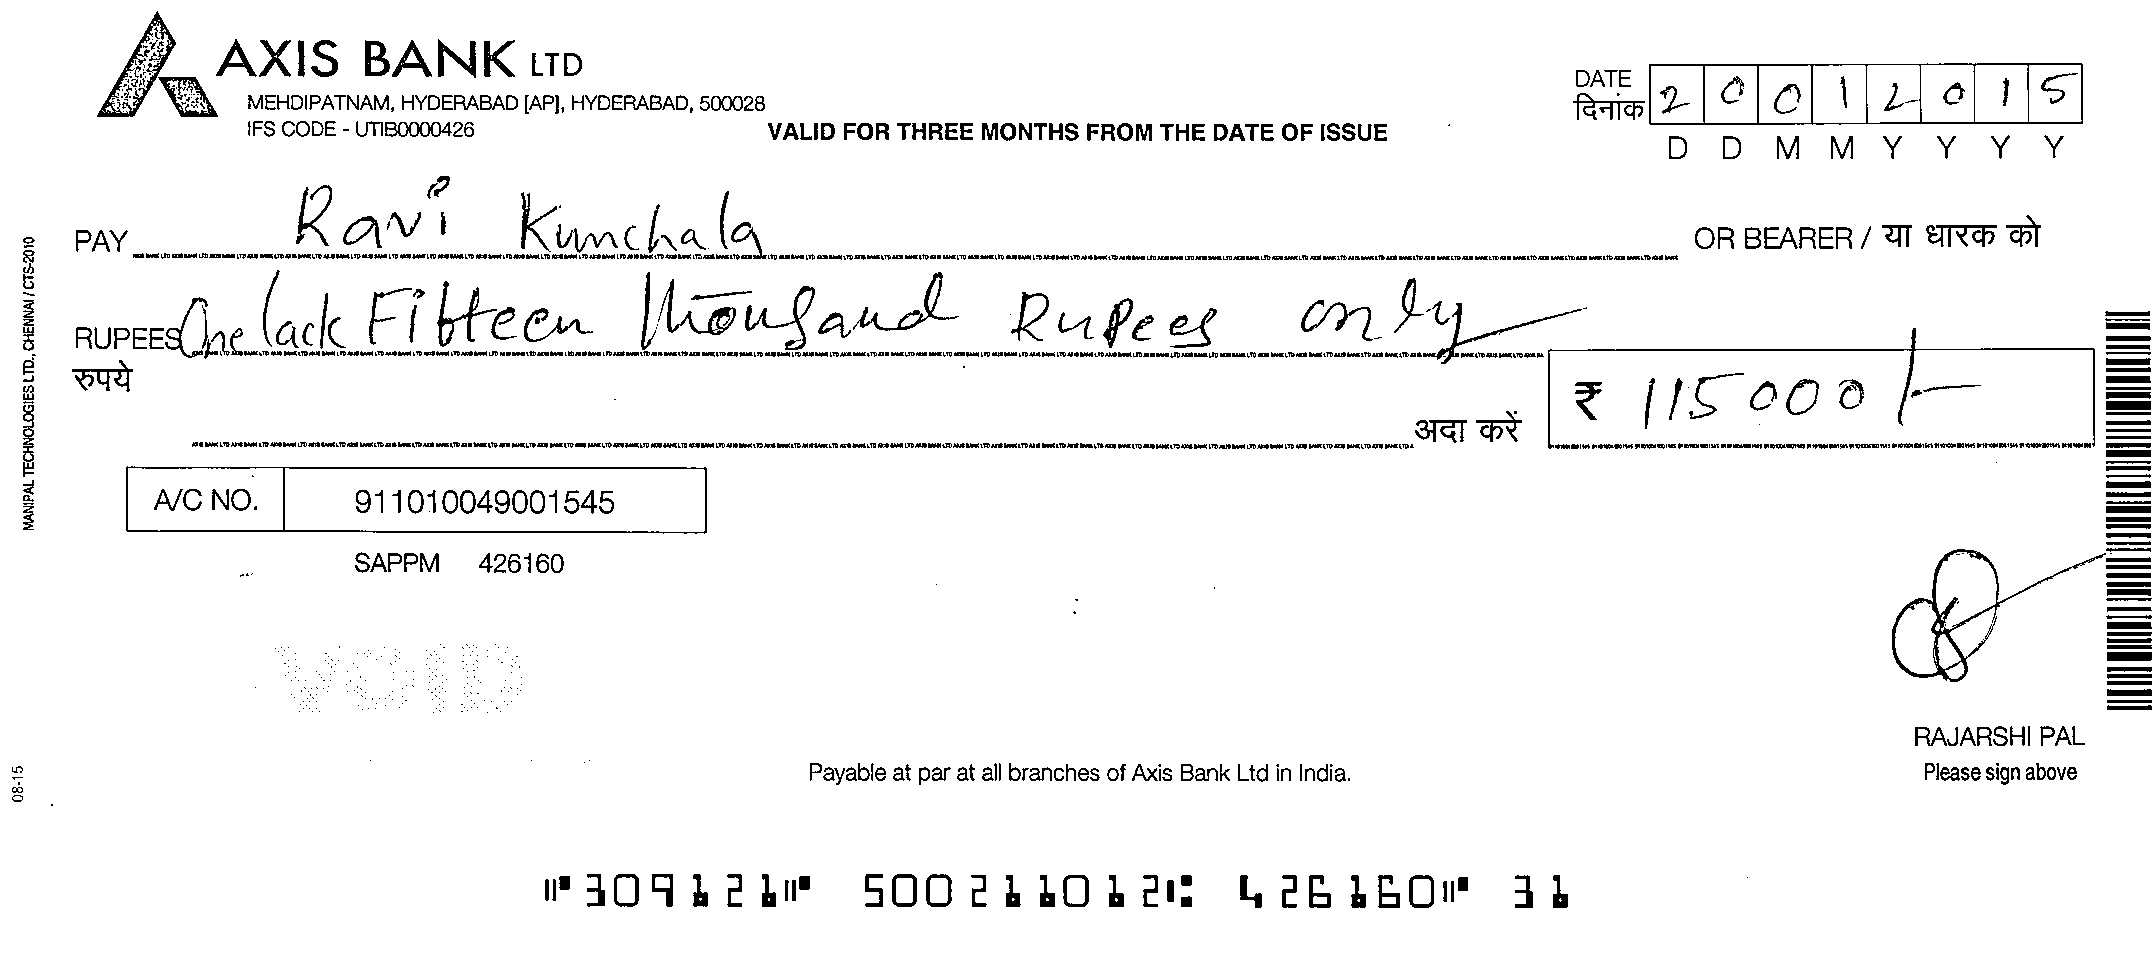 AXIS BANK LTD
MEHDIPATNAM, HYDERABAD [AP], HYDERABAD, 500028
IFS CODE - UTIB0000426
VALID FOR THREE MONTHS FROM THE DATE OF ISSUE
DATE
दिनांक 2 0 0 1 2 0 1 5
D D M M Y Y Y Y
PAY Ravi Kunchala OR BEARER / या धारक को
RUPEES One lack Fifteen Thousand Rupees only
रुपये
अदा करें ₹ 115000/-
A/C NO. 911010049001545
SAPPM 426160
VOID
RAJARSHI PAL
Please sign above
Payable at par at all branches of Axis Bank Ltd in India.
MANIPAL TECHNOLOGIES LTD., CHENNAI / CTS-2010
08-15
⑈309121⑈ 500211012⑆ 426160⑈ 31